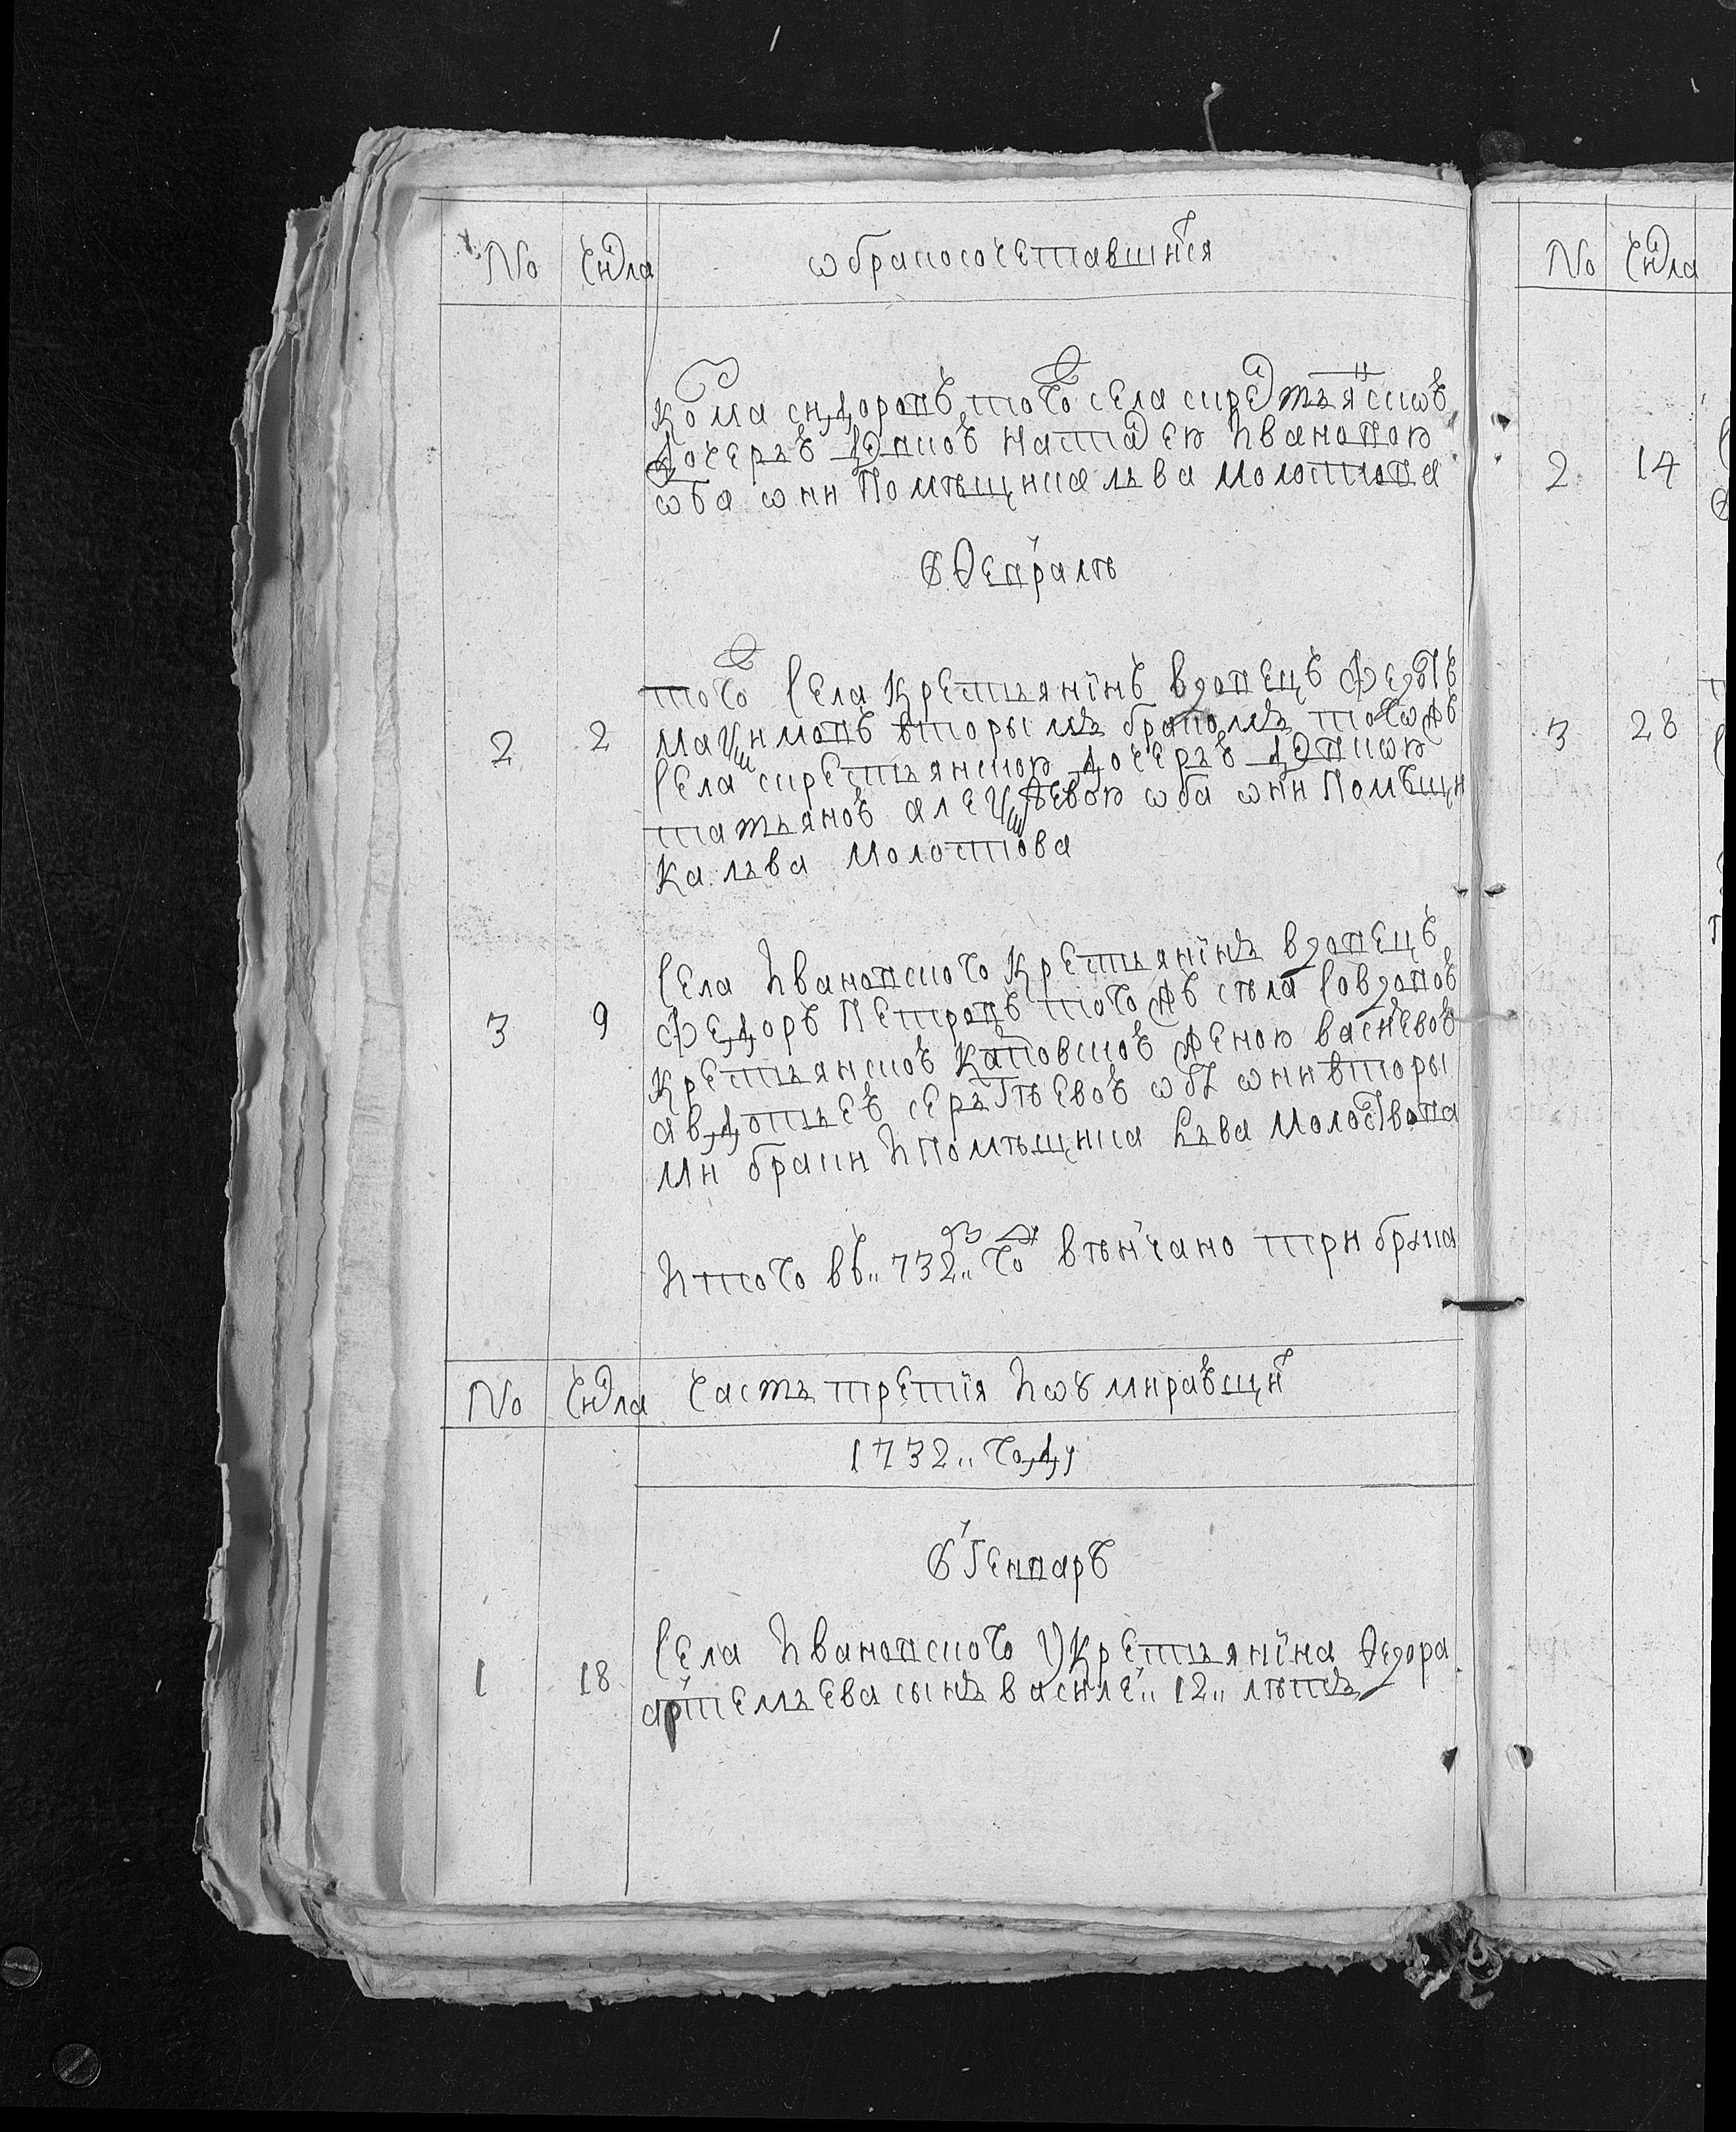 № числа ѡбракосочетавшихся
Кома сидоровъ того села скрестьянскою
дочерью девкою настасею Ивановою
ѡба ѡни помѣщика льва молоствова
В Ѳевралѣ
2 2 того села Крестьянїнъ вдовецъ
маѯимовъ вторымъ бракомъ того жъ
села скрестьянскою дочерью девкою
татьяною алеѯѣевою ѡба ѡни помѣщи
ка льва молоствова
3 9 села Ивановского Крестьянїнъ вдовецъ
Федоръ петровъ того жъ села совдовою
крестьянскою женою васильевою
авдотьею сергѣевою ѡба ѡни вторы
ми браки и помѣщика Льва молоствова
Итого въ 732 году вѣнчано три брака
№ числа часть третїя Иѡумирающихъ
1732 году
В Генваре
1 18 села Ивановского У Крестьянїна Ѳедора
артемьева сынъ василей 12 лѣтъ
№ числа
2 14
3 28